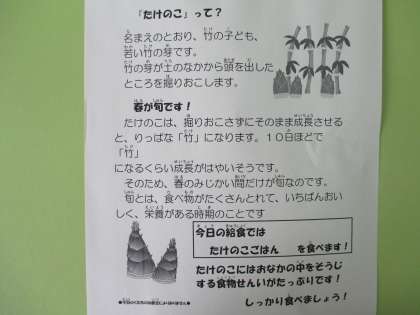 「たけのこ」って？
名まえのとおり、竹の子ども、
若い竹の芽です。
竹の芽が土のなかから頭を出した
ところを掘りおこします。
春が旬です！
たけのこは、掘りおこさずにそのまま成長させる
と、りっぱな「竹」になります。１０日ほどで
「竹」
になるくらい成長がはやいそうです。
そのため、春のみじかい間だけが旬なのです。
旬とは、食べ物がたくさんとれて、いちばんおい
しく、栄養がある時期のことです
今日の給食では
たけのこごはん　を食べます！
たけのこにはおなかの中をそうじ
する食物せんいがたっぷりです！
しっかり食べましょう！